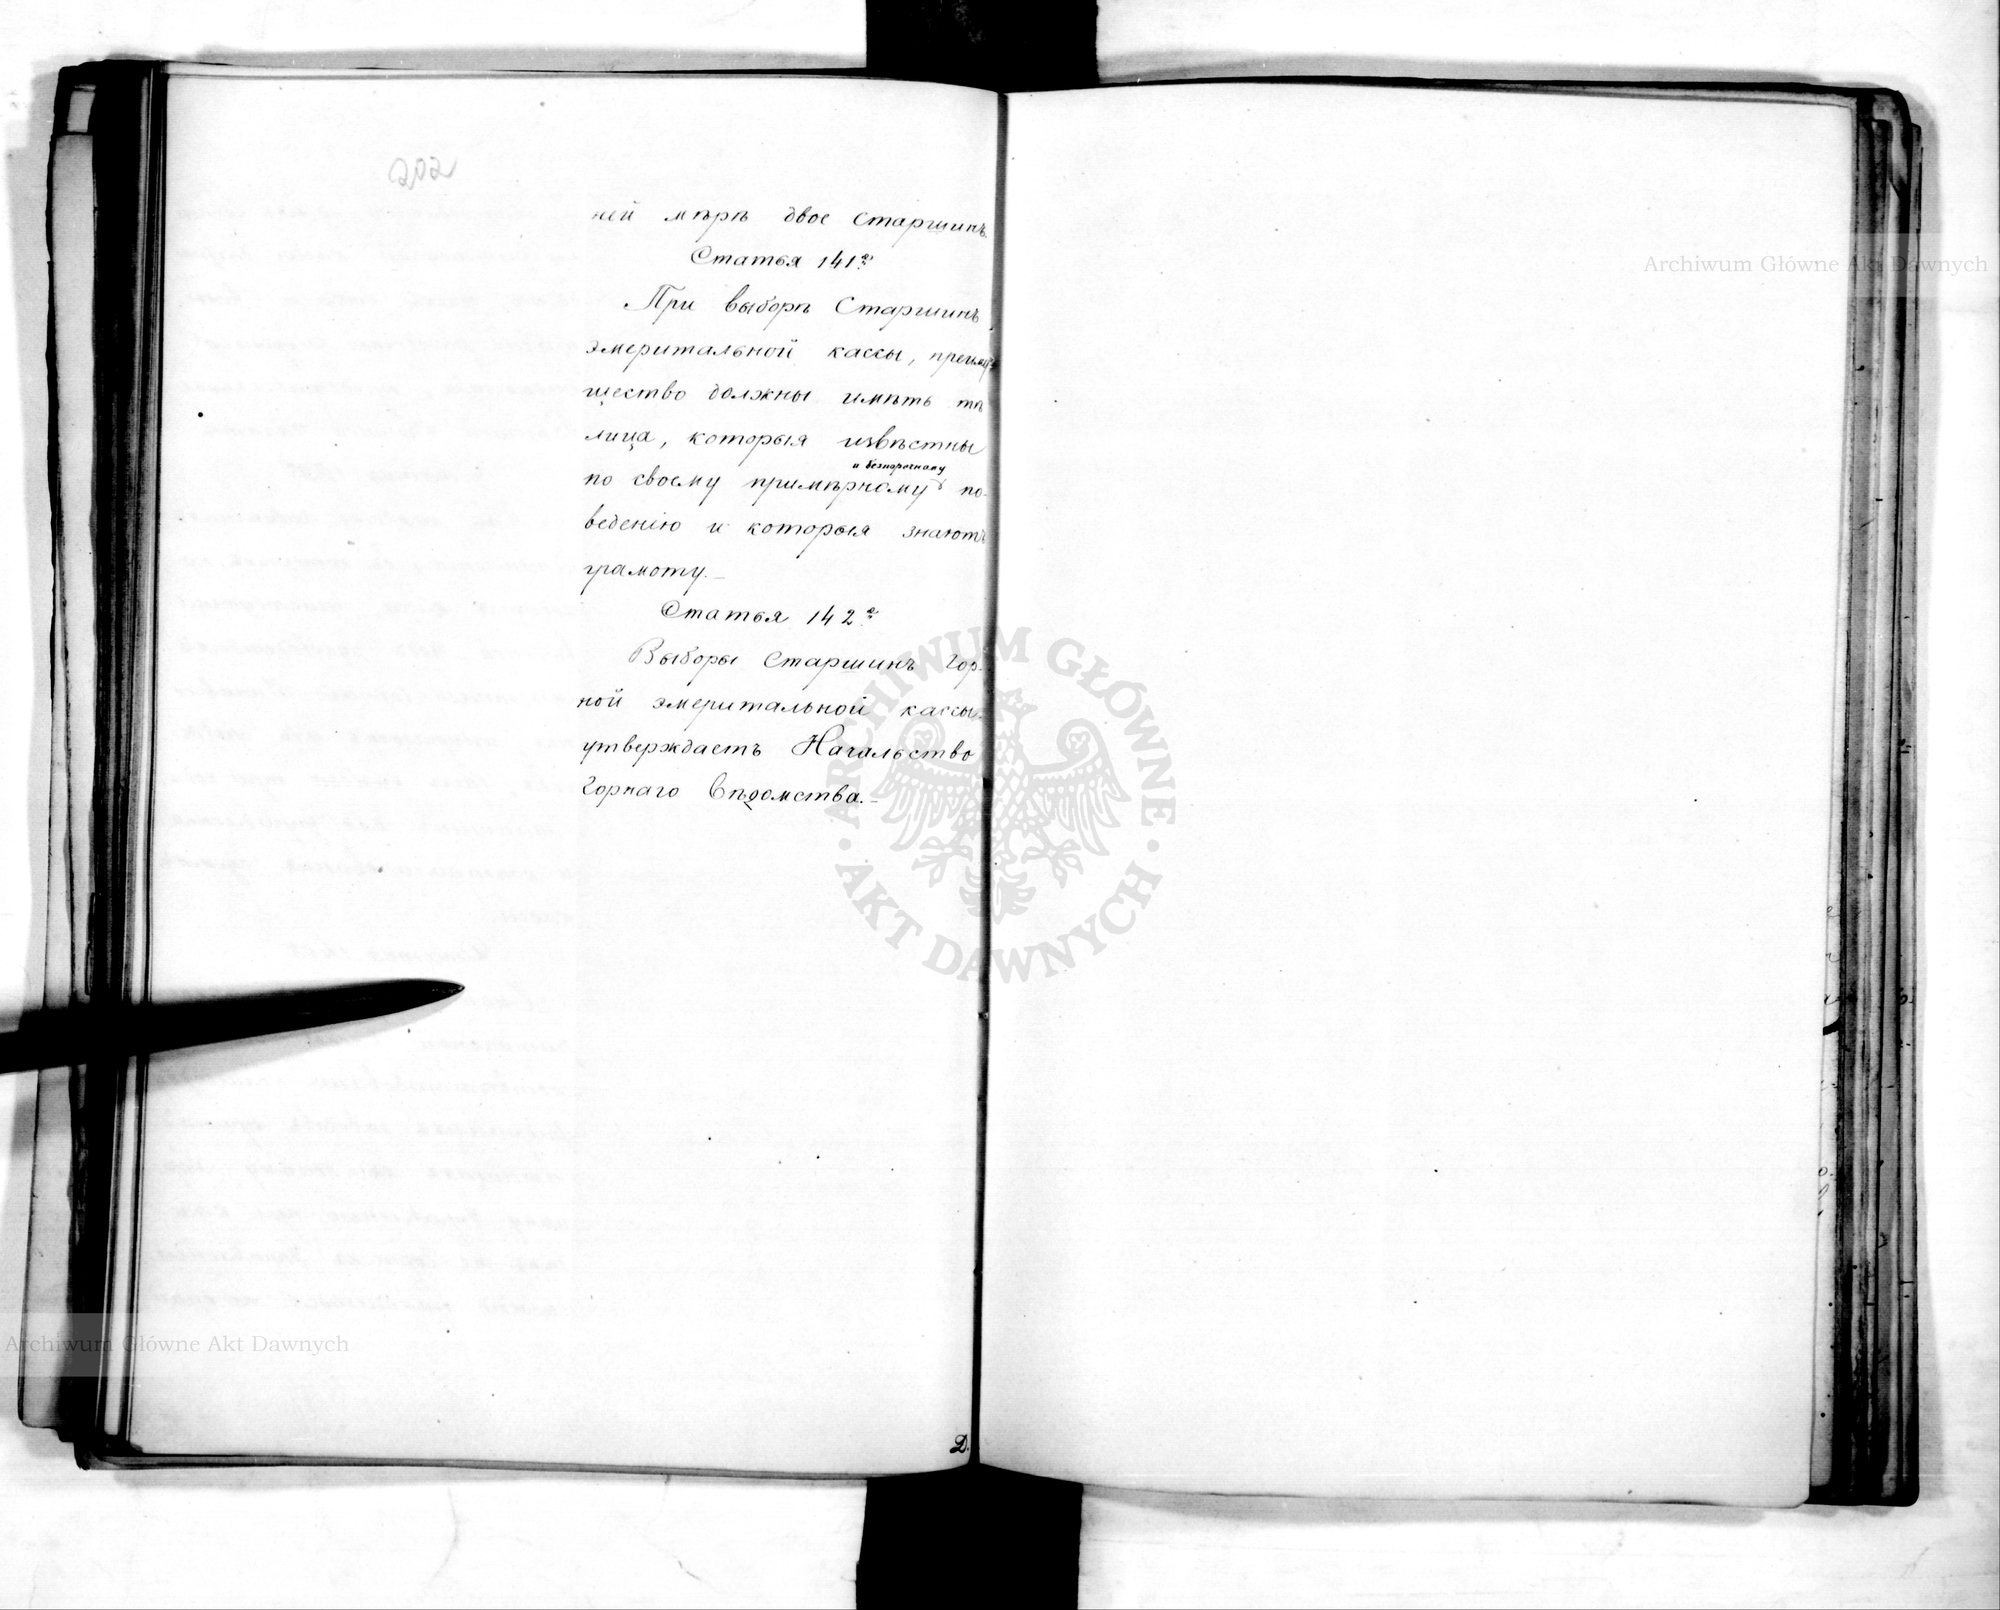 202
ней мѣрѣ двое Старшинъ.
Статья 141я
При выборѣ Старшинъ
эмеритальной кассы, преиму-
щество должны имѣть тѣ
лица, которыя извѣстны
и безпорочному
по своему примѣрному по-
веденію и которыя знаютъ
грамоту.—
Статья 142я
Выборы Старшинъ Гор-
ной эмеритальной кассы
утверждаетъ Начальство
Горнаго Вѣдомства.—
Д.
Archiwum Główne Akt Dawnych
ARCHIWUM GŁÓWNE
· AKT DAWNYCH ·
Archiwum Główne Akt Dawnych